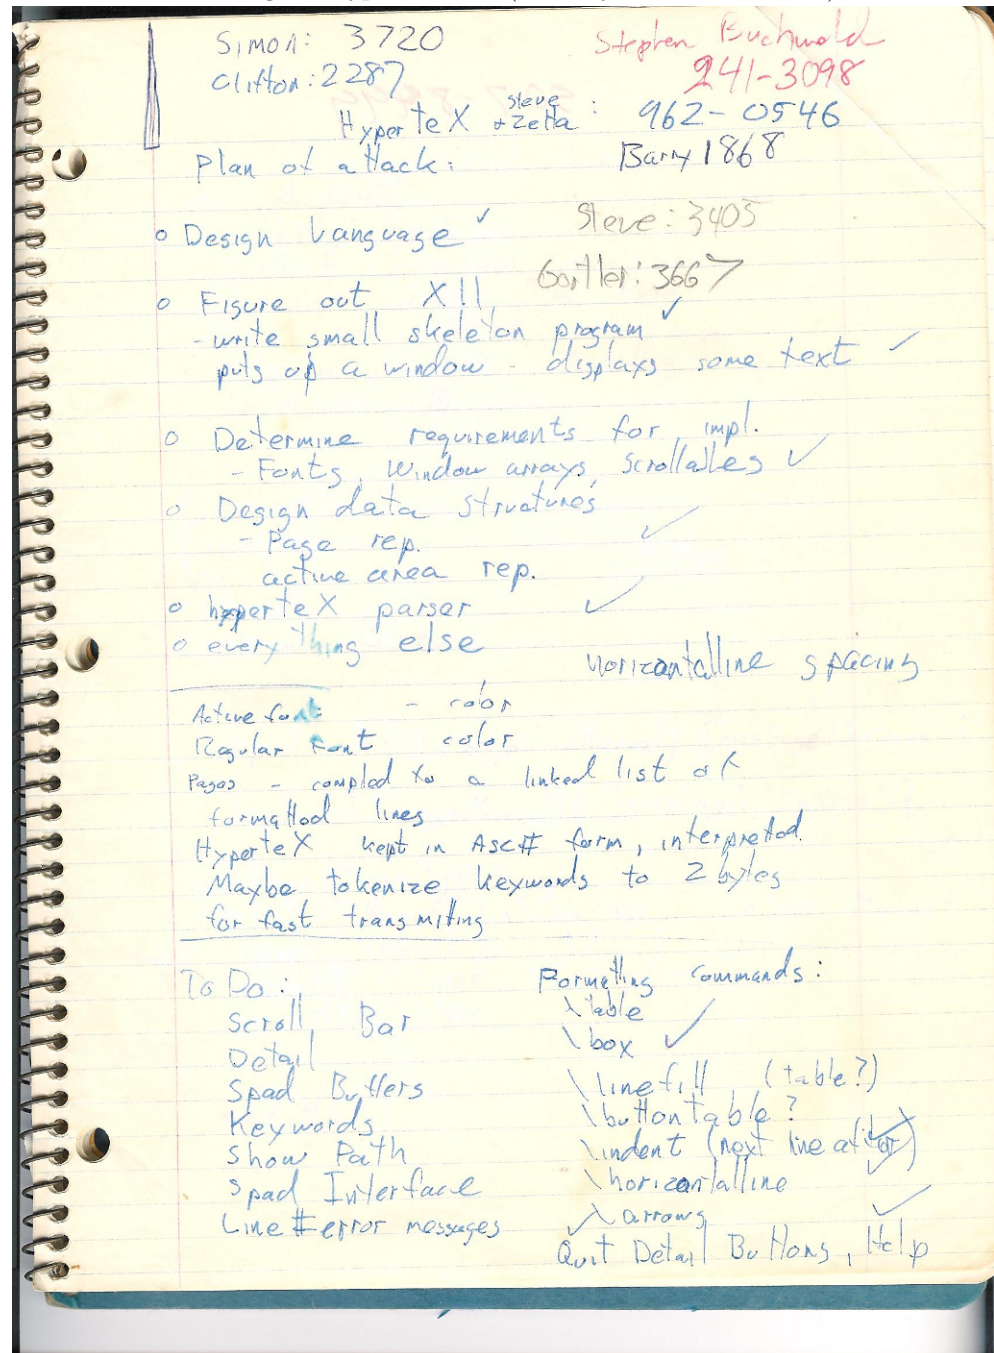 Simon: 3720
Stephen Buchwald
241-3098
Clifton: 2287
HyperteX steve + Zella : 962-0546
Plan of attack:
Barry 1868
o Design Language ✓
Steve: 3405
Gortler: 3667
o Figure out X11
- write small skeleton program ✓
puts up a window - displays some text ✓
o Determine requirements for impl.
- Fonts, Window arrays, Scrollables ✓
o Design data structures
- Page rep. ✓
active area rep.
o hyperteX parser ✓
o everything else
horizontalline spacing
Active font - color
Regular Font color
Pages - compled to a linked list of
formatted lines
HyperteX kept in ASCII form, interpreted.
Maybe tokenize keywords to 2 bytes
for fast transmiting
To Do:
Scroll Bar
Detail
Spad Buffers
Keywords
Show Path
Spad Interface
Line # error messages
Formatting commands:
\table
\box ✓
\linefill (table?)
\buttontable?
\indent (next line after)
\horizontalline ✓
✓ \arrows
Quit Detail Buttons, Help ✓